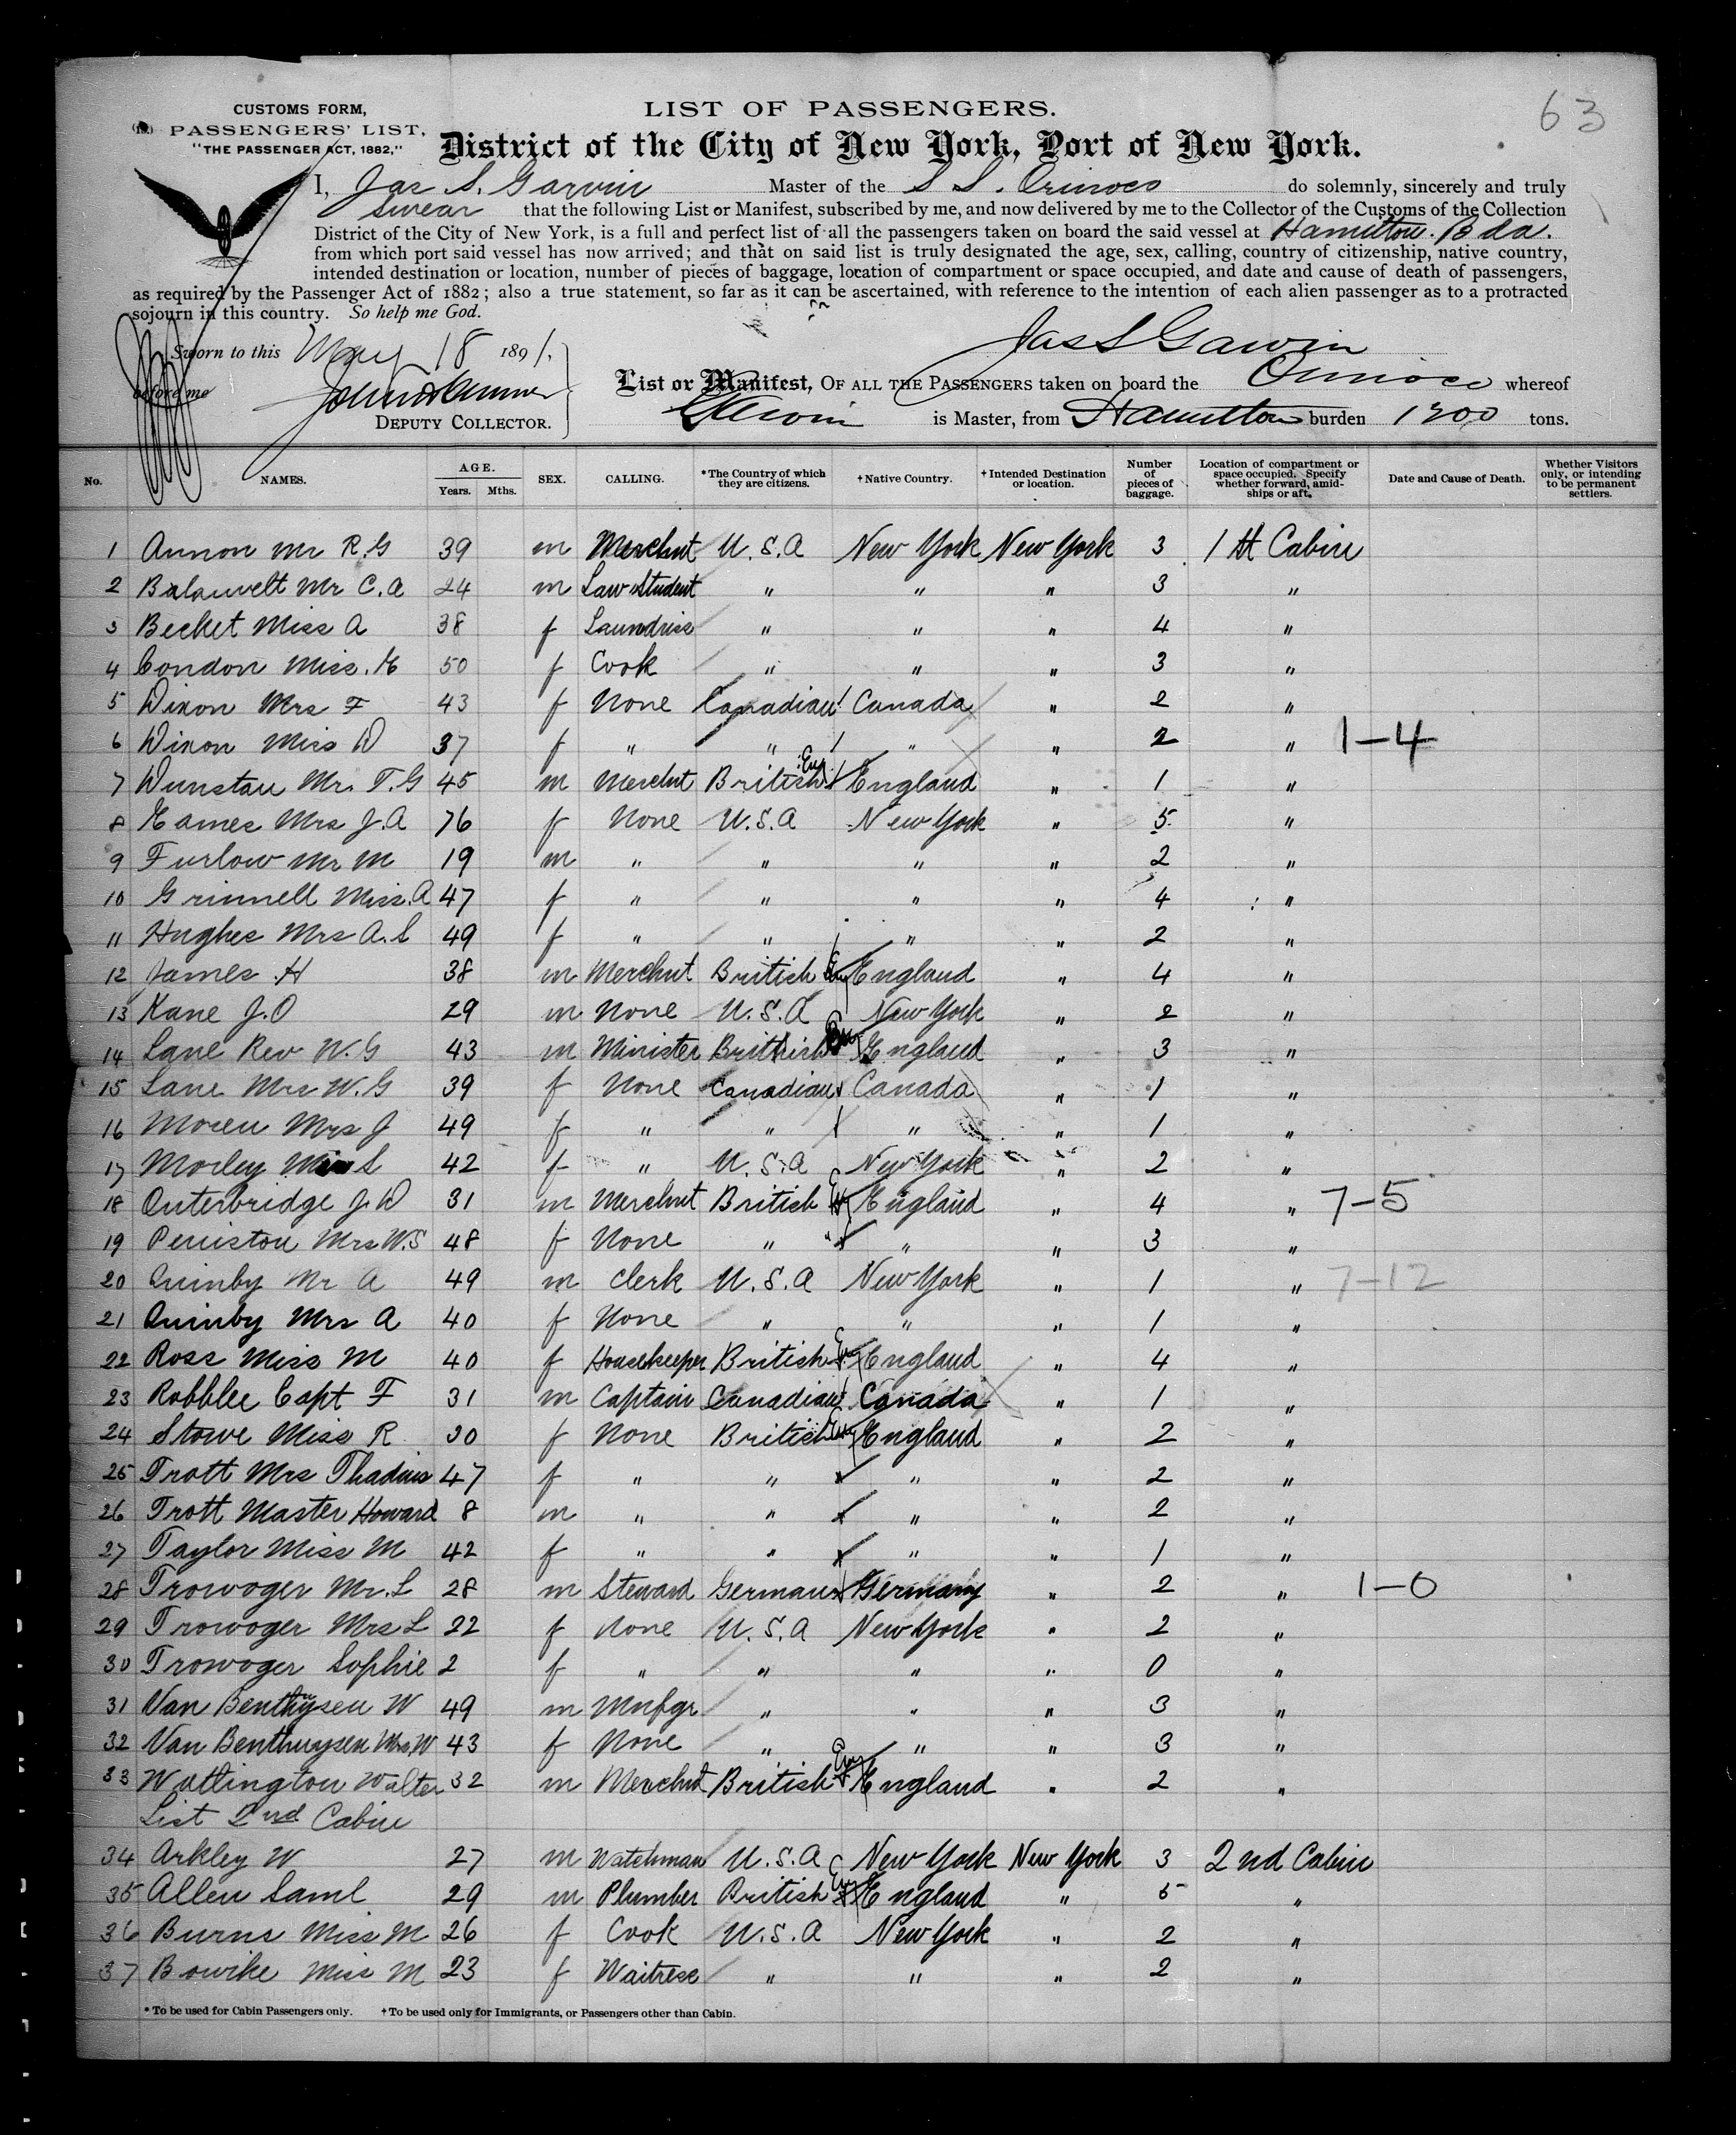 63
CUSTOMS FORM,
PASSENGERS' LIST,
"THE PASSENGER ACT, 1882,"
LIST OF PASSENGERS.
District of the City of New York, Port of New York.
I, Jas S. Garvin Master of the S S. Orinoco do solemnly, sincerely and truly
swear that the following List or Manifest, subscribed by me, and now delivered by me to the Collector of the Customs of the Collection
District of the City of New York, is a full and perfect list of all the passengers taken on board the said vessel at Hamilton. Bda.
from which port said vessel has now arrived; and that on said list is truly designated the age, sex, calling, country of citizenship, native country,
intended destination or location, number of pieces of baggage, location of compartment or space occupied, and date and cause of death of passengers,
as required by the Passenger Act of 1882; also a true statement, so far as it can be ascertained, with reference to the intention of each alien passenger as to a protracted
sojourn in this country. So help me God.
Jas S Garvin
Sworn to this May 18 1891.
before me
DEPUTY COLLECTOR.
List or Manifest, OF ALL THE PASSENGERS taken on board the Orinoco whereof
Garvin is Master, from Hamilton burden 1900 tons.
No. NAMES. AGE. Years. Mths. SEX. CALLING. *The Country of which they are citizens. †Native Country. †Intended Destination or location. Number of pieces of baggage. Location of compartment or space occupied. Specify whether forward, amidships or aft. Date and Cause of Death. Whether Visitors only, or intending to be permanent settlers.
1 Annon Mr R.G 39 m Merchnt U.S.A New York New York 3 1 st Cabin
2 Balauvelt Mr C.A 24 m Law Student " " " 3 "
3 Becket Miss A 38 f Laundriss " " " 4 "
4 Condon Miss. K 50 f Cook " " " 3 "
5 Dixon Mrs F 43 f None Canadian Canada " 2 "
6 Dixon Miss D 37 f " " " " 2 " 1-4
7 Dunstan Mr. T.G 45 m Merchnt British Eng England " 1 "
8 Eames Mrs J.A 76 f None U.S.A New York " 5 "
9 Furlow Mr M 19 m " " " " 2 "
10 Grinnell Miss. A 47 f " " " " 4 "
11 Hughes Mrs A.S 49 f " " " " 2 "
12 James H 38 m Merchnt British Eng England " 4 "
13 Kane J.O 29 m None U.S.A New York " 2 "
14 Lane Rev W.G 43 m Minister British Eng England " 3 "
15 Lane Mrs W.G 39 f None Canadian Canada " 1 "
16 Moren Mrs J 49 f " " " " 1 "
17 Morley Miss S 42 f " U.S.A New York " 2 "
18 Outerbridge J.D 31 m Merchnt British England " 4 " 7-5
19 Peniston Mrs W.S 48 f None " " " 3 "
20 Quinby Mr A 49 m Clerk U.S.A New York " 1 " 7-12
21 Quinby Mrs A 40 f None " " " 1 "
22 Ross Miss M 40 f Housekeeper British Eng England " 4 "
23 Robblee Capt F 31 m Captain Canadian Canada " 1 "
24 Stowe Miss R 30 f None British Eng England " 2 "
25 Trott Mrs Thadius 47 f " " " " 2 "
26 Trott Master Howard 8 m " " " " 2 "
27 Taylor Miss M 42 f " " " " 1 "
28 Trowoger Mr. L 28 m Steward German Germany " 2 " 1-0
29 Trowoger Mrs L 22 f None U.S.A New York " 2 "
30 Trowoger Sophie 2 f " " " " 0 "
31 Van Benthuysen W 49 m Mnfgr " " " 3 "
32 Van Benthuysen Mrs W 43 f None " " " 3 "
33 Watlington Walter 32 m Merchnt British Eng England " 2 "
List 2nd Cabin
34 Arkley W 27 m Watchman U.S.A New York New York 3 2 nd Cabin
35 Allen Saml 29 m Plumber British Eng England " 5 "
36 Burns Miss M 26 f Cook U.S.A New York " 2 "
37 Bowike Miss M 23 f Waitress " " " 2 "
* To be used for Cabin Passengers only. † To be used only for Immigrants, or Passengers other than Cabin.